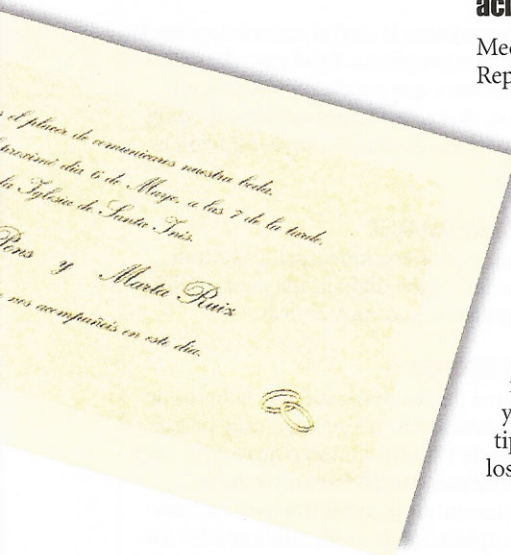 Med
Rep
el placer de comunicaros nuestra boda.
próximo día 6 de Mayo, a las 7 de la tarde,
la Iglesia de Santa Inés.
Pons y Marta Ruiz
nos acompañéis en este día.
y
tip
los